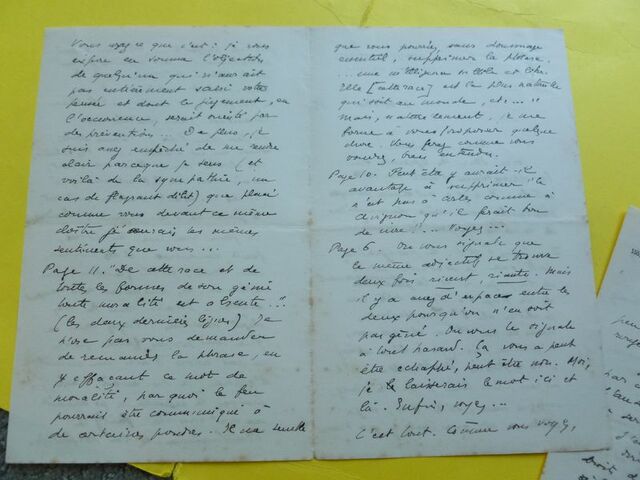 Vous voyez ce que c'est : je vous
expose en somme l'objection
de quelqu'un qui n'aurait
pas entièrement saisi votre
pensée et dont le jugement, en
l'occurrence, serait vicié par
des préventions... De plus, je
suis assez empêché de me rendre
clair parce que je sens (et
voilà de la sympathie, un
cas de flagrant délit) que placé
comme vous devant ce même
cloître j'aurais les mêmes
sentiments que vous...
Page 11. "De cette race et de
toutes les formes de son génie
toute moralité est absente..."
(les deux dernières lignes) Je
n'ose pas vous demander
de remanier la phrase, en
y effaçant ce mot de
moralité, par quoi le feu
pourrait être communiqué à
de certaines poudres. Il me semble
que vous pourriez, sans dommage
éventuel, supprimer la phrase.
Elle [cette race] est la plus naturelle
qui soit au monde, et... "
Mais, naturellement, je me
borne à vous proposer quelque
chose. Vous ferez comme vous
voudrez, bien entendu.
Page 10. Peut être y aurait-il
avantage à supprimer "Ce
n'est pas à Arles comme à
Avignon qu'il ferait bon
de vivre"... Voyez...
Page 6. On vous signale que
le même adjectif se trouve
deux fois: riant, riante. Mais
il y a assez d'espace entre les
deux pour qu'on n'en soit
pas gêné. On vous le signale
à tout hasard. Ça vous a peut
être échappé, peut être non. Moi,
je laisserais le mot ici et
là. Enfin, voyez...
C'est tout. Comme vous voyez,